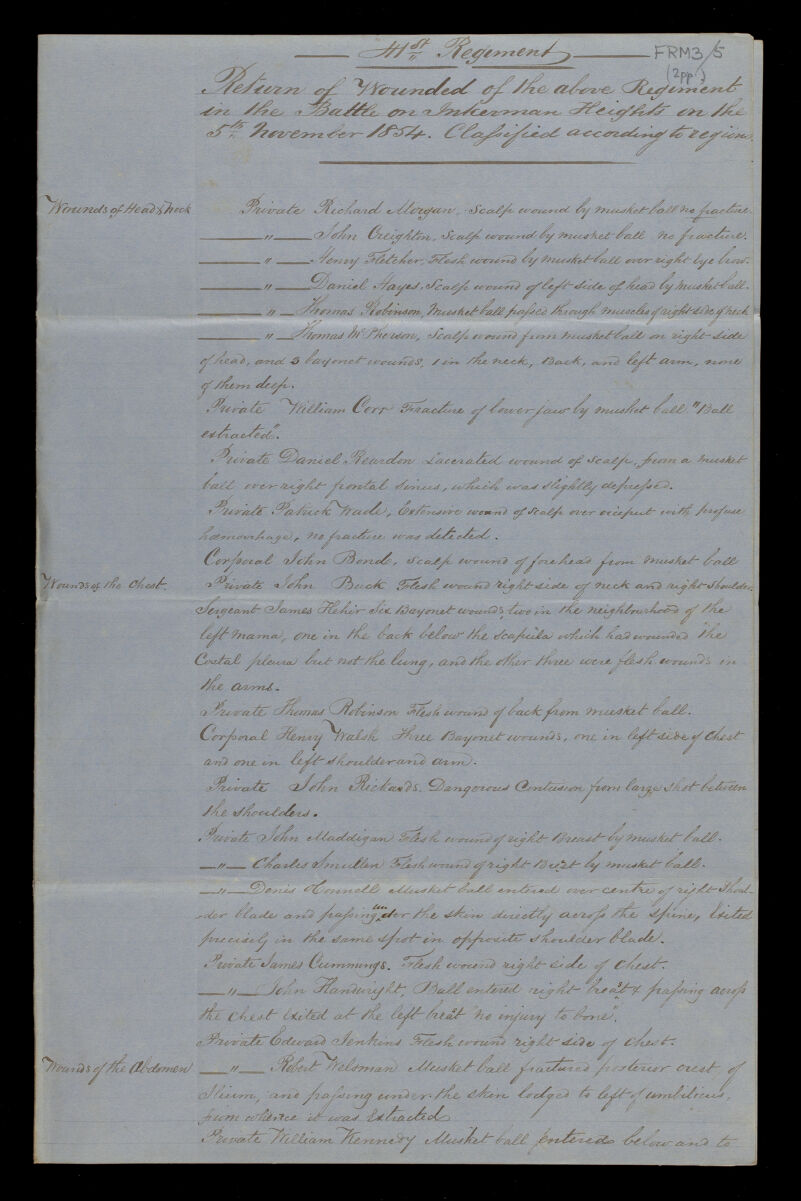 41st Regiment
FRM3/5
(2pp.)
Return of Wounded of the above Regiment
in the Battle on Inkerman Heights on the
5th November 1854. Classified according to region.
Wounds of Head & Neck
Private Richard Morgan, Scalp wound by musket ball no fracture.
—"— John Creighton, Scalp wound by musket ball no fracture.
—"— Henry Fletcher, Flesh wound by musket ball over right eye brow.
—"— Daniel Hayes, Scalp wound of left side of head by musket ball.
—"— Thomas Robinson, Musket ball passed through muscles of right side of neck
—"— Thomas McPherson, Scalp wound from musket ball on right side
of head, and 3 bayonet wounds, 1 in the neck, Back, and left arm, none
of them deep.
Private William Corr Fracture of lower jaw by musket ball "Ball
extracted".
Private Daniel Reardon Lacerated wound of Scalp, from a musket
ball over right frontal sinus, which was slightly depressed.
Private Patrick Wade, Extensive wound of Scalp over occiput with profuse
hæmorrhage, no fracture was detected.
Corporal John Bond, Scalp wound of forehead from musket ball
Wounds of the Chest.
Private John Buck Flesh wound right side of neck and right shoulder.
Sergeant James Hehir Six Bayonet wounds, two in the neighbourhood of the
left mama, one in the back below the scapula which had wounded the
Costal pleura but not the lung, and the other three were flesh wounds in
the arms.
Private Thomas Robinson Flesh wound of back from musket ball.
Corporal Henry Walsh Three Bayonet wounds, one in left side of Chest
and one in left shoulder and arm.
Private John Rickards. Dangerous Contusion from large shot between
the shoulders.
Private John Maddigan Flesh wound of right Breast by musket ball.
—"— Charles Smullen Flesh wound of right Brest by musket ball.
—"— Denis Connell Musket ball entered over centre of right Shoul-
-der blade and passing under the skin directly across the spine, Exited
precisely in the same spot in opposite shoulder blade.
Private James Cummings. Flesh wound right side of chest.
—"— John Handwright, Ball entered right breast & passing across
the chest Exited at the left breast "no injury to bone".
Private Edward Jenkins Flesh wound right side of chest.
Wounds of the Abdomen
—"— Robert Welsman Musket ball fractured posterior crest of
Ilium, and passing under the skin lodged to left of umbilicus,
from whence it was Extracted
Private William Kennedy Musket ball entered below and to